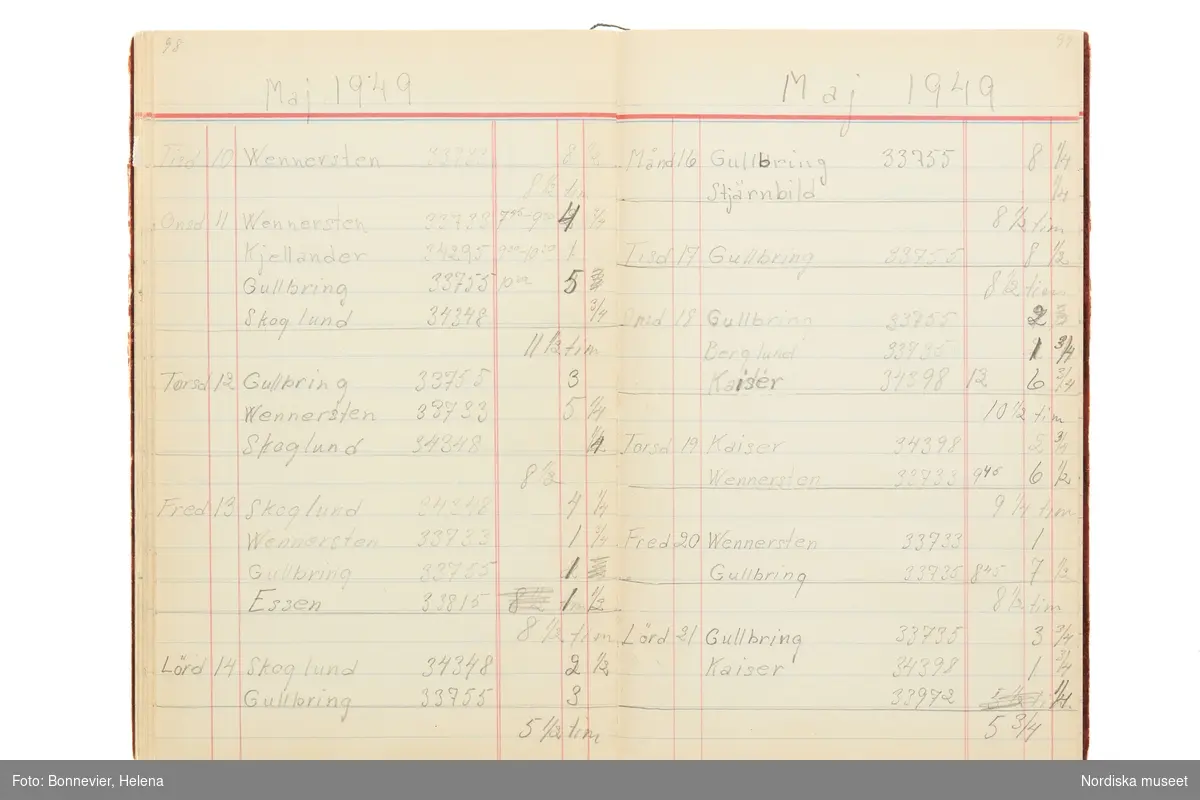 98
Maj 1949
Tisd 10 Wennersten 33733 8 1/2
8 1/2 tim
Onsd 11 Wennersten 33733 4 1/4
Kjellander 34295 1
Gullbring 33755 5
Skoglund 34348 3/4
11 1/2 tim
Torsd 12 Gullbring 33755 3
Wennersten 33733 5 1/4
Skoglund 34348 1/4
8 1/2
Fred 13 Skoglund 34348 4 1/4
Wennersten 33733 1 1/4
Gullbring 33755 1
Essen 33815 1 1/2
8 1/2 tim
Lörd 14 Skoglund 34348 2 1/2
Gullbring 33755 3
5 1/2 tim
99
Maj 1949
Månd 16 Gullbring 33755 8 1/4
Stjärnbild 1/4
8 1/2 tim
Tisd 17 Gullbring 33755 8 1/2
8 1/2 tim
Onsd 18 Gullbring 33755 2
Berglund 33735 1 3/4
Kaiser 34398 12 6 3/4
10 1/2 tim
Torsd 19 Kaiser 34398 2 3/4
Wennersten 33733 9 45 6 1/2
9 1/4 tim
Fred 20 Wennersten 33733 1
Gullbring 33735 8 45 7 1/2
8 1/2 tim
Lörd 21 Gullbring 33735 3 3/4
Kaiser 34398 1 3/4
33972 1/4
5 3/4
Foto: Bonnevier, Helena
Nordiska museet